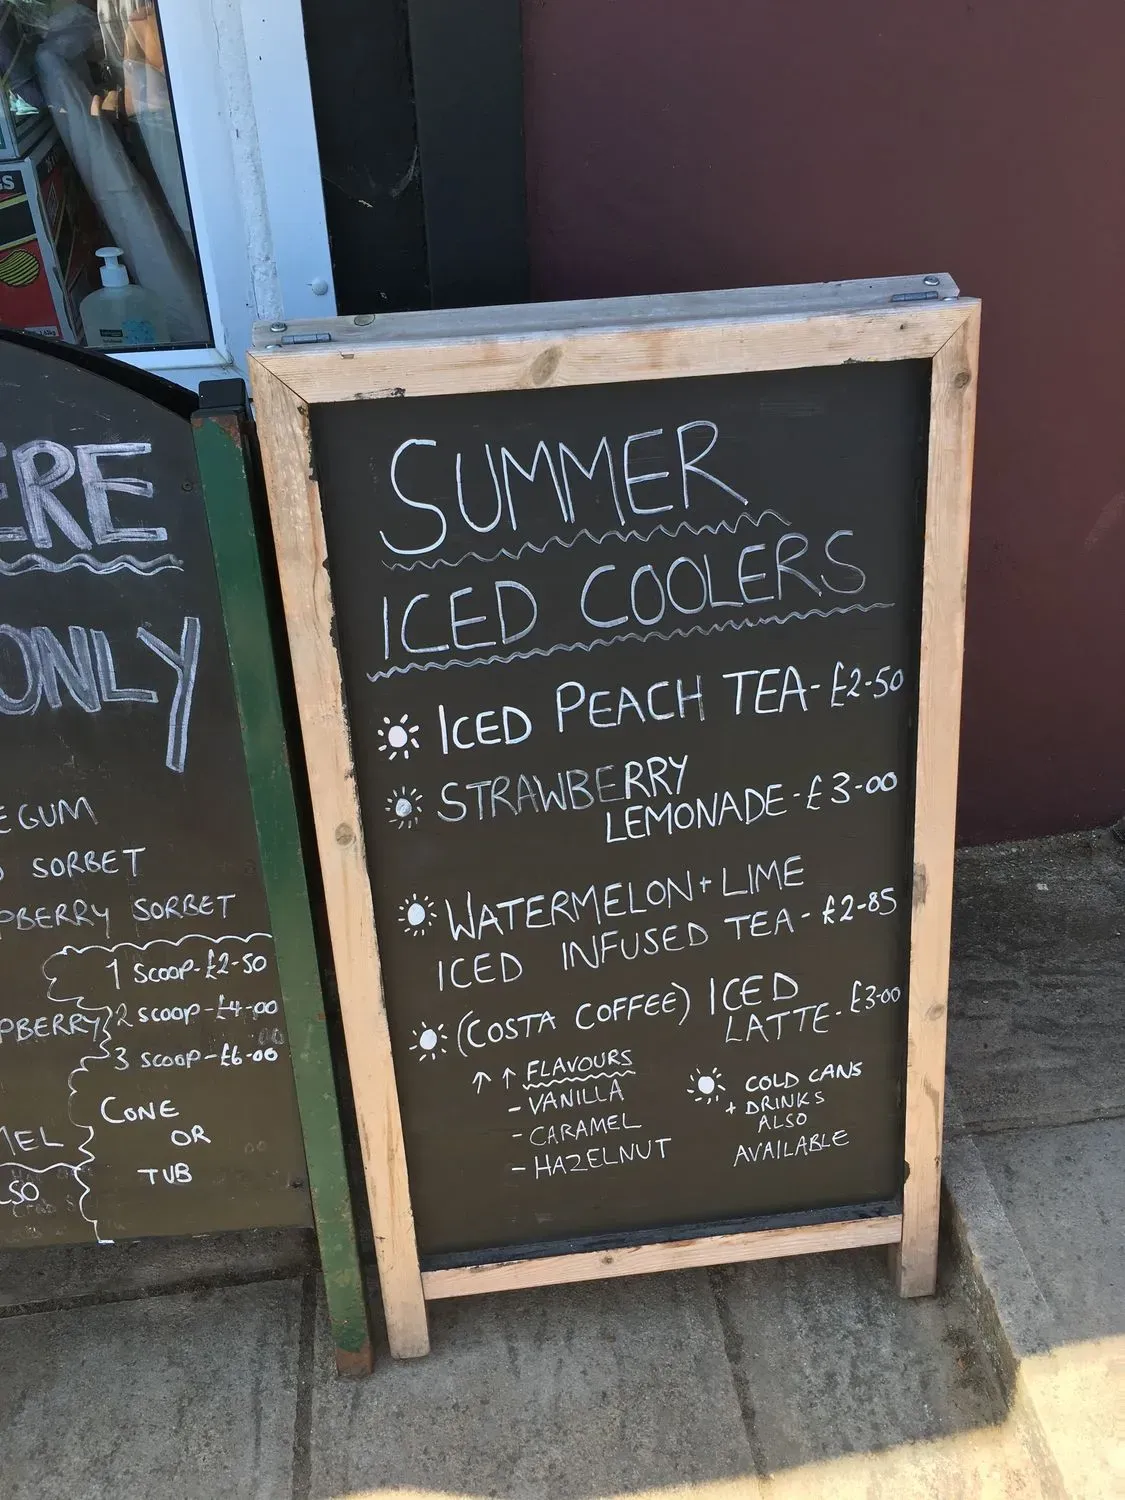 SUMMER
ICED COOLERS
ICED PEACH TEA - £2-50
STRAWBERRY
LEMONADE - £3-00
WATERMELON + LIME
ICED INFUSED TEA - £2-85
(COSTA COFFEE) ICED
LATTE - £3-00
↑ ↑ FLAVOURS
- VANILLA
- CARAMEL
- HAZELNUT
COLD CANS
+ DRINKS
ALSO
AVAILABLE
ERE
ONLY
EGUM
SORBET
PBERRY SORBET
1 SCOOP - £2-50
PBERRY
2 SCOOP - £4-00
3 SCOOP - £6-00
CONE
OR
TUB
MEL
LSO